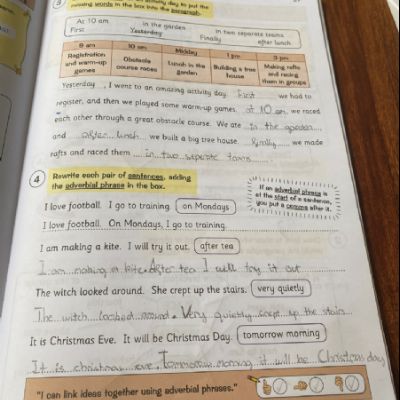 activity day to put the
missing words in the box into the paragraph.
At 10 am in the garden in two separate teams
First Yesterday Finally after lunch
9 am 10 am Midday 1 pm 3 pm
Registration and warm-up games Obstacle course races Lunch in the garden Building a tree house Making rafts and racing them in groups
Yesterday, I went to an amazing activity day. First we had to
register, and then we played some warm-up games. at 10 am we raced
each other through a great obstacle course. We ate in the garden
and after lunch we built a big tree house. Finally we made
rafts and raced them in two seperate teams
4 Rewrite each pair of sentences, adding
the adverbial phrase in the box.
If an adverbial phrase is
at the start of a sentence,
you put a comma after it.
I love football. I go to training. on Mondays
I love football. On Mondays, I go to training.
I am making a kite. I will try it out. after tea
I am making a kite. After tea I will try it out
The witch looked around. She crept up the stairs. very quietly
The witch looked around. Very quietly crept up the stairs
It is Christmas Eve. It will be Christmas Day. tomorrow morning
It is christmas eve. Tomorrow morning it will be Christmas day
"I can link ideas together using adverbial phrases."